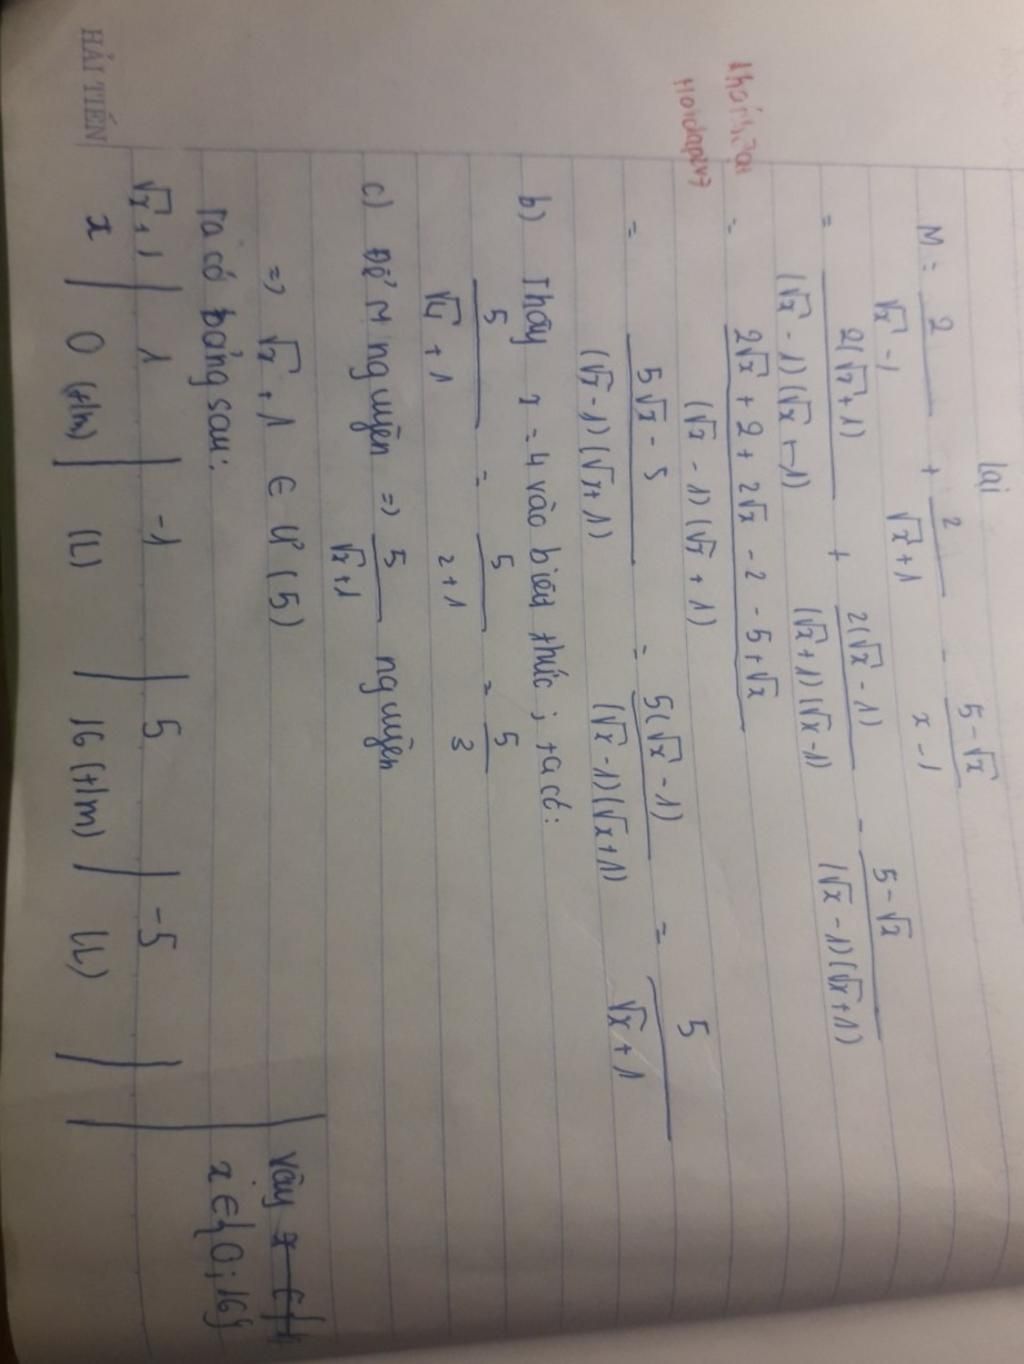 lại
M = 2/(√x - 1) + 2/(√x + 1) - (5 - √x)/(x - 1)
= 2(√x + 1)/((√x - 1)(√x + 1)) + 2(√x - 1)/((√x + 1)(√x - 1)) - (5 - √x)/((√x - 1)(√x + 1))
= (2√x + 2 + 2√x - 2 - 5 + √x)/((√x - 1)(√x + 1))
= (5√x - 5)/((√x - 1)(√x + 1)) = 5(√x - 1)/((√x - 1)(√x + 1)) = 5/(√x + 1)
b) Thay x = 4 vào biểu thức ; ta có:
5/(√4 + 1) = 5/(2 + 1) = 5/3
c) Để M nguyên => 5/(√x + 1) nguyên
=> √x + 1 ∈ Ư (5)
Ta có bảng sau:
√x + 1 | 1 | -1 | 5 | -5 |
x | 0 (t/m) | (L) | 16 (t/m) | (L) |
Vậy x ∈ {
x ∈ {0; 16}
HẢI TIẾN